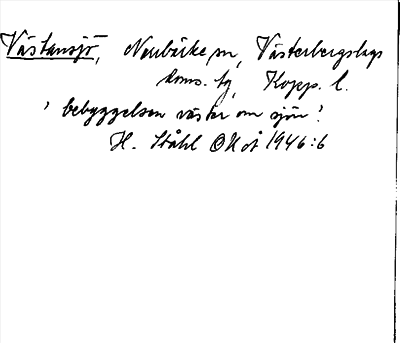 Västansjö, Norrbärke sn, Västerbergslags
doms. tg, Kopp. l.
'bebyggelsen väster om sjön'.
H. Ståhl OUÅ 1946:6